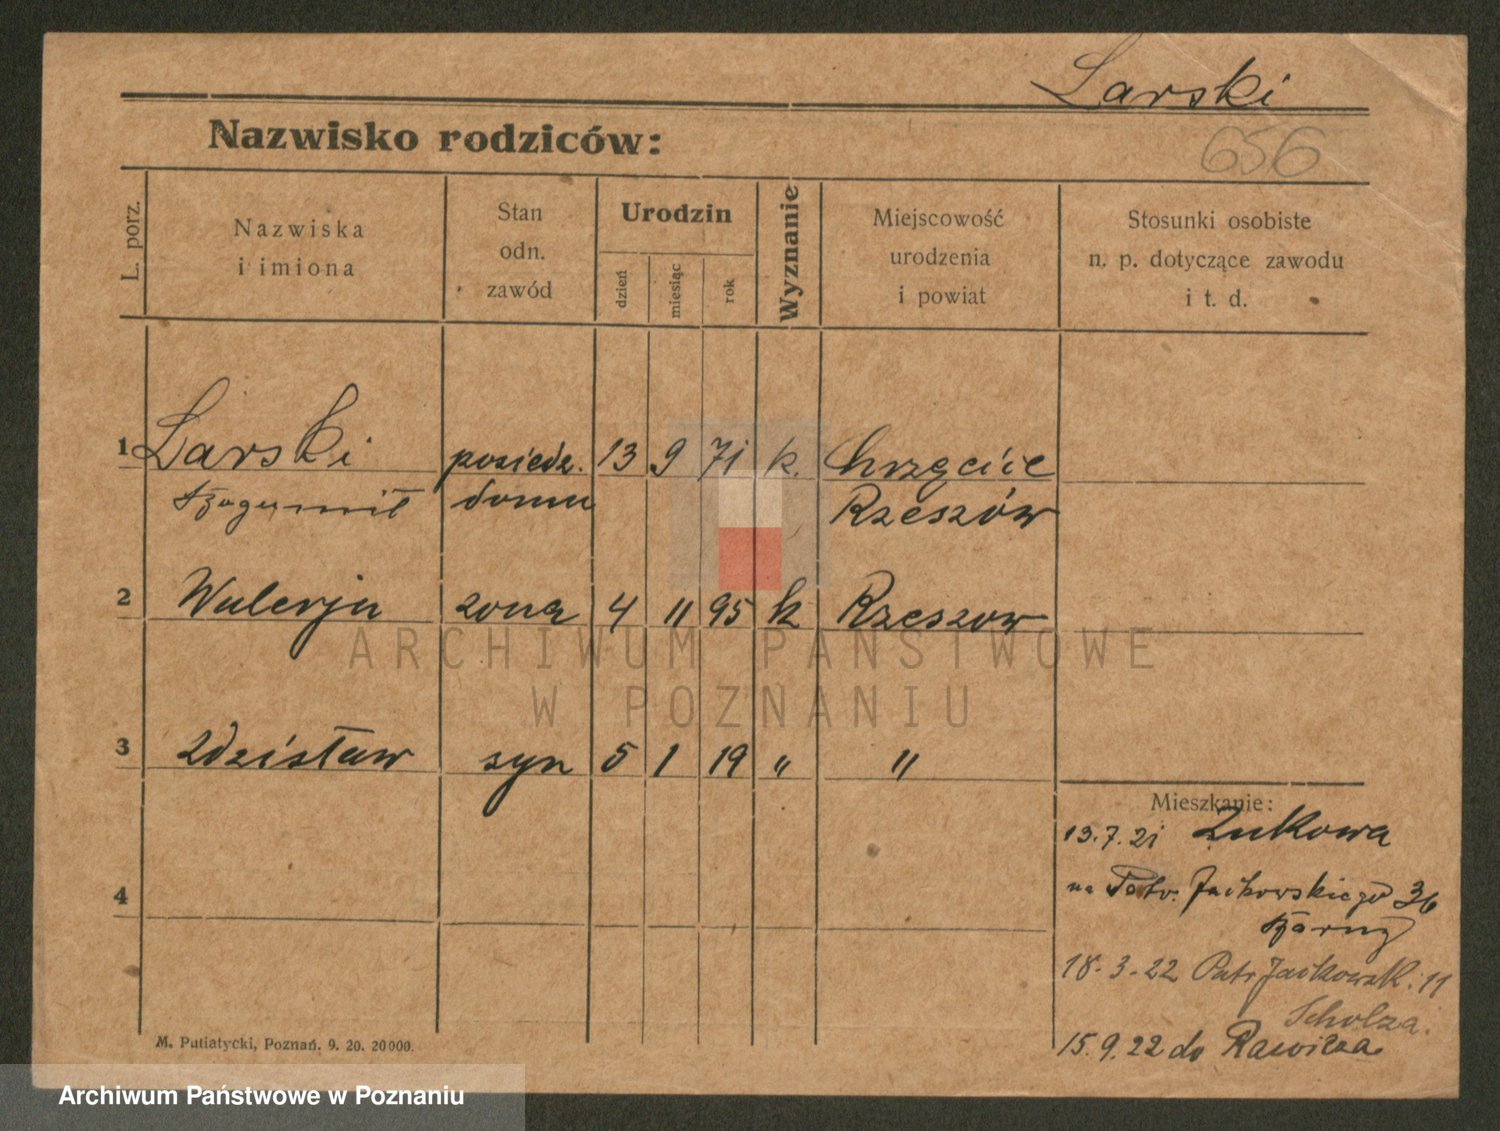 Larski
Nazwisko rodziców:
656
L. porz.
Nazwiska
i imiona
Stan
odn.
zawód
Urodzin
dzień
miesiąc
rok
Wyznanie
Miejscowość
urodzenia
i powiat
Stosunki osobiste
n. p. dotyczące zawodu
i t. d.
1 Larski posiedz. 13 9 71 k.
Bogumił domu Rzeszów
2 Walerja żona 4 11 95 k Rzeszow
3 Zdzisław syn 5 1 19 " "
4
Mieszkanie:
13.7.21 Żukowa
na Patr. Jackowskiego 36
18.3.22 Patr Jackowsk. 11
Scholza.
15.9.22 do Rawicza
M. Putiatycki, Poznań. 9. 20. 20000.
ARCHIWUM PAŃSTWOWE
W POZNANIU
Archiwum Państwowe w Poznaniu